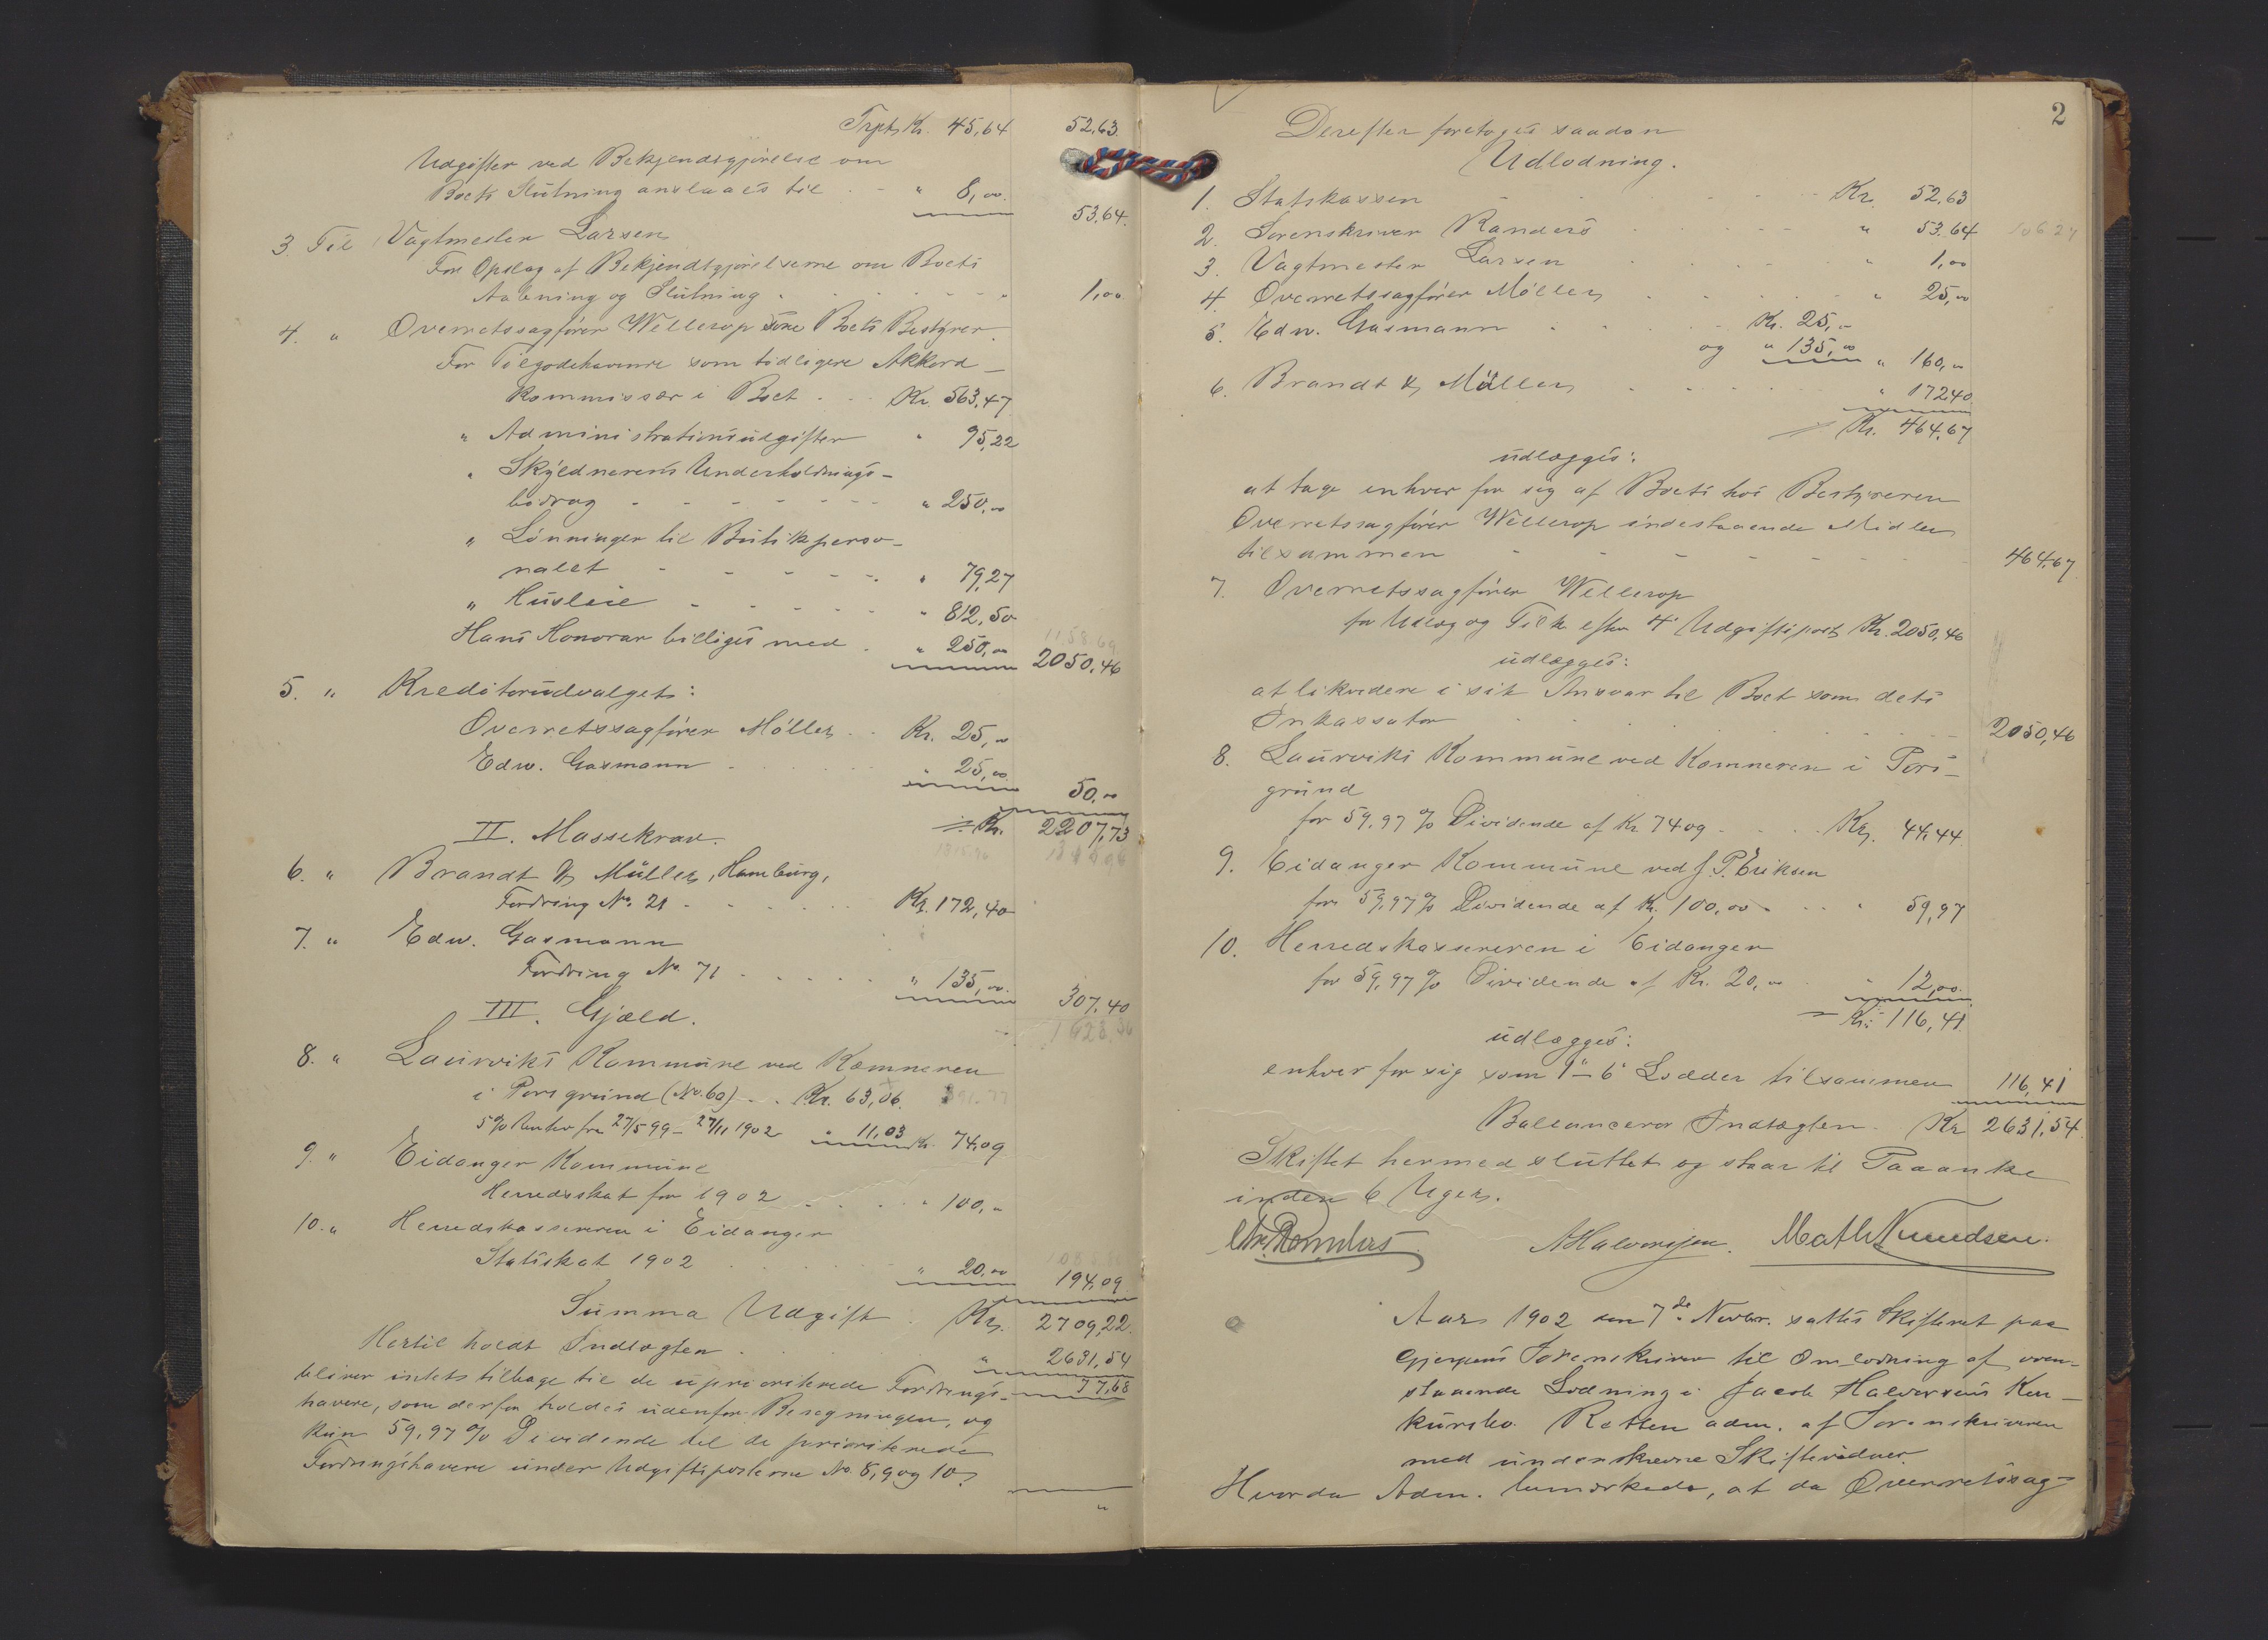 Trpt. Kr. 45,64 52,63.
Udgifter ved Bekjendtgjørelse om
Boets Slutning anslaaes til " 8,00. 53,64.
3. Til Vagtmester Larsen
For Opslag af Bekjendtgjørelserne om Boets
Aabning og Slutning " 1,00
4. " Overretssagfører Wellerop som Boets Bestyrer.
For Tilgodehavende som tidligere Akkord-
kommissær i Boet Kr. 563,47
" Administrationsudgifter " 95,22
" Skyldnerens Underholdnings-
bidrag " 250,00
" Lønninger til Butikperso-
nalet " 79,27
" Husleie " 812,50
1158.69
Hans Honorar billiges med " 250,00 2050,46
5. " Kreditorudvalget:
Overretssagfører Møller Kr. 25,00
Edw. Gasmann " 25,00 50,00
II. Massekrav. Kr. 2207,73
6. " Brandt & Müller, Hamburg,
Fordring No. 21 Kr. 172,40
7. " Edw. Gasmann
Fordring No. 71 " 135,00. 307,40
III. Gjæld.
8. " Laurviks Kommune ved Kæmneren
i Porsgrund (No. 60) Kr. 63,06.
5% Renter fra 27/5 99 - 27/11 1902 " 11,03 Kr. 74,09
9. " Eidanger Kommune
Herredsskat for 1902 " 100,00
10. " Herredskassereren i Eidanger
Statsskat 1902 " 20,00 194,09
Summa Udgift Kr. 2709,22.
Hertil holdt Indtægten " 2631,54
77,68
bliver intet tilbage til de uprioriterede Fordrings-
havere, som derfor holdes udenfor Beregningen, og
kun 59,97 % Dividende til de prioriterede
Fordringshavere under Udgiftsposterne No. 8, 9 og 10.
"
2
Derefter foretoges saadan
Udlodning.
1. Statskassen Kr. 52,63
2. Sorenskriver Randers " 53,64 106.27
3. Vagtmester Larsen " 1,00
4. Overretssagfører Møller " 25,00
5. Edw. Gasmann Kr. 25,-
og " 135,00 " 160,00
6. Brandt & Müller " 172,40
Kr. 464,67
udlægges:
at tage enhver for sig af Boets hos Bestyreren
Overretssagfører Wellerop indestaaende Midler
tilsammen 464,67
7. Overretssagfører Wellerop
for Udlæg og Tilk. efter 4. Udgiftspost Kr. 2050,46
udlægges:
at likvidere i sit Ansvar til Boet som dets
Inkassator 2050,46
8. Laurviks Kommune ved Kæmneren i Pors-
grund
for 59,97 % Dividende af Kr. 74,09 Kr. 44,44.
9. Eidanger Kommune ved J. P. Eriksen
for 59,97 % Dividende af Kr. 100,00 " 59,97
10. Herredskassereren i Eidanger
for 59,97 % Dividende af Kr. 20,00 " 12,00.
Kr. 116,41.
udlægges:
enhver for sig som 1-6 Lodder tilsammen 116,41
Ballancerer Indtægten Kr. 2631,54.
Skiftet hermed sluttet og staar til Paaanke
inden 6 Uger.
Chr. Randers. A. Halvorsen. Math. Knudsen.
Aar 1902 den 7de Novbr. sattes Skifteret paa
Gjerpens Sorenskriveri til Omlodning af oven-
staaende Lodning i Jacob Halvorsens Kon-
kursbo. Retten adm. af Sorenskriveren
med underskrevne Skiftevidner.
Hvorda Adm. bemærkede, at da Overretssag-